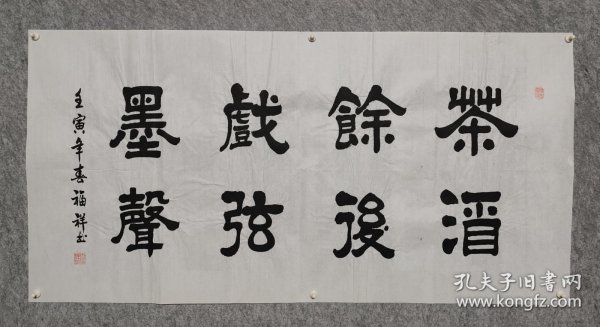 茶餘戲墨
酒後弦聲
壬寅年春福祥书
孔夫子旧书网
www.kongfz.com